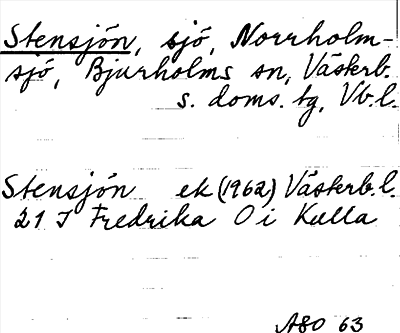 Stensjön, sjö, Norrholm-
sjö, Bjurholms sn, Västerb.
s. doms. tg, Vb.l.
Stensjön ek (1962) Västerb.l.
21 J Fredrika O i Kulla
ASO 63